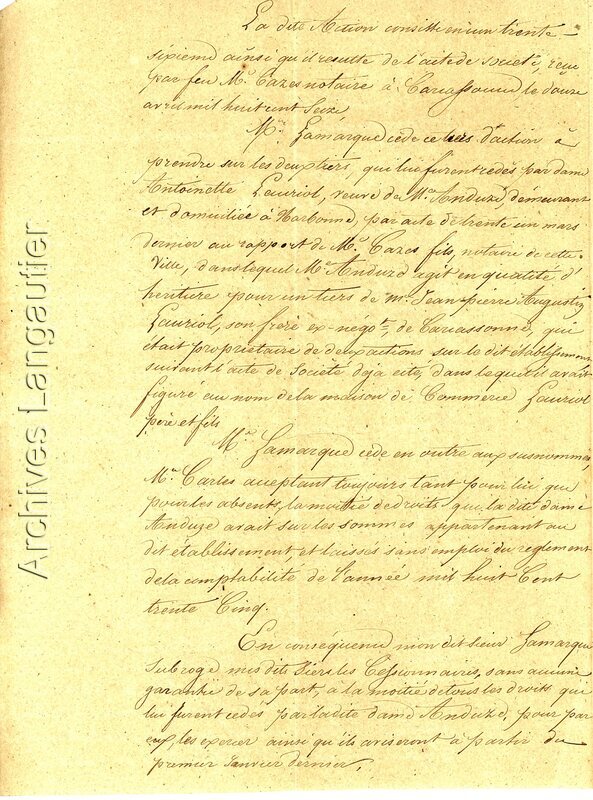 La dite Action consiste en un trente-
sixieme ainsi qu'il resulte de l'acte de societé, reçu
par feu Mr. Cazes notaire à Carcassonne le douze
avril mil huit cent Seize
Mr. Lamarque cède ce tiers d'action à
prendre sur les deux tiers, qui lui furent cedés par dame
Antoinette Lauriol, veuve de Mr. Anduze, demeurant
et domiciliée à Narbonne, par acte du trente un mars
dernier au rapport de Mr. Cazes fils, notaire de cette
Ville, dans lequel Me Anduze agit en qualité d'
heritiere pour un tiers de mr. Jean pierre Augustin
Lauriol, son frere ex-négot. de Carcassonne, qui
était propriétaire de deux actions sur le dit établissement
suivant l'acte de Société deja cité, dans lequel il avait
figuré au nom de la maison de Commerce Lauriol
pere et fils
Mr. Lamarque cède en outre aux susnommés,
Mr. Carles acceptant toujours tant pour lui que
pour les absents, la moitié de droits que la dite dame
Anduze avait sur les sommes appartenant au
dit établissement et laissés sans emploi du reglement
de la comptabilité de l'année mil huit Cent
trente Cinq.
En conséquence mon dit sieur Lamarque
Subroge mes dits Siers les Cessionnaires, sans aucune
garantie de sa part, à la moitié de tous les droits qui
lui furent cedés par la dite dame Anduze, pour par
eux, les exercer ainsi qu'ils aviseront à partir du
premier Janvier dernier,
Archives Langautier